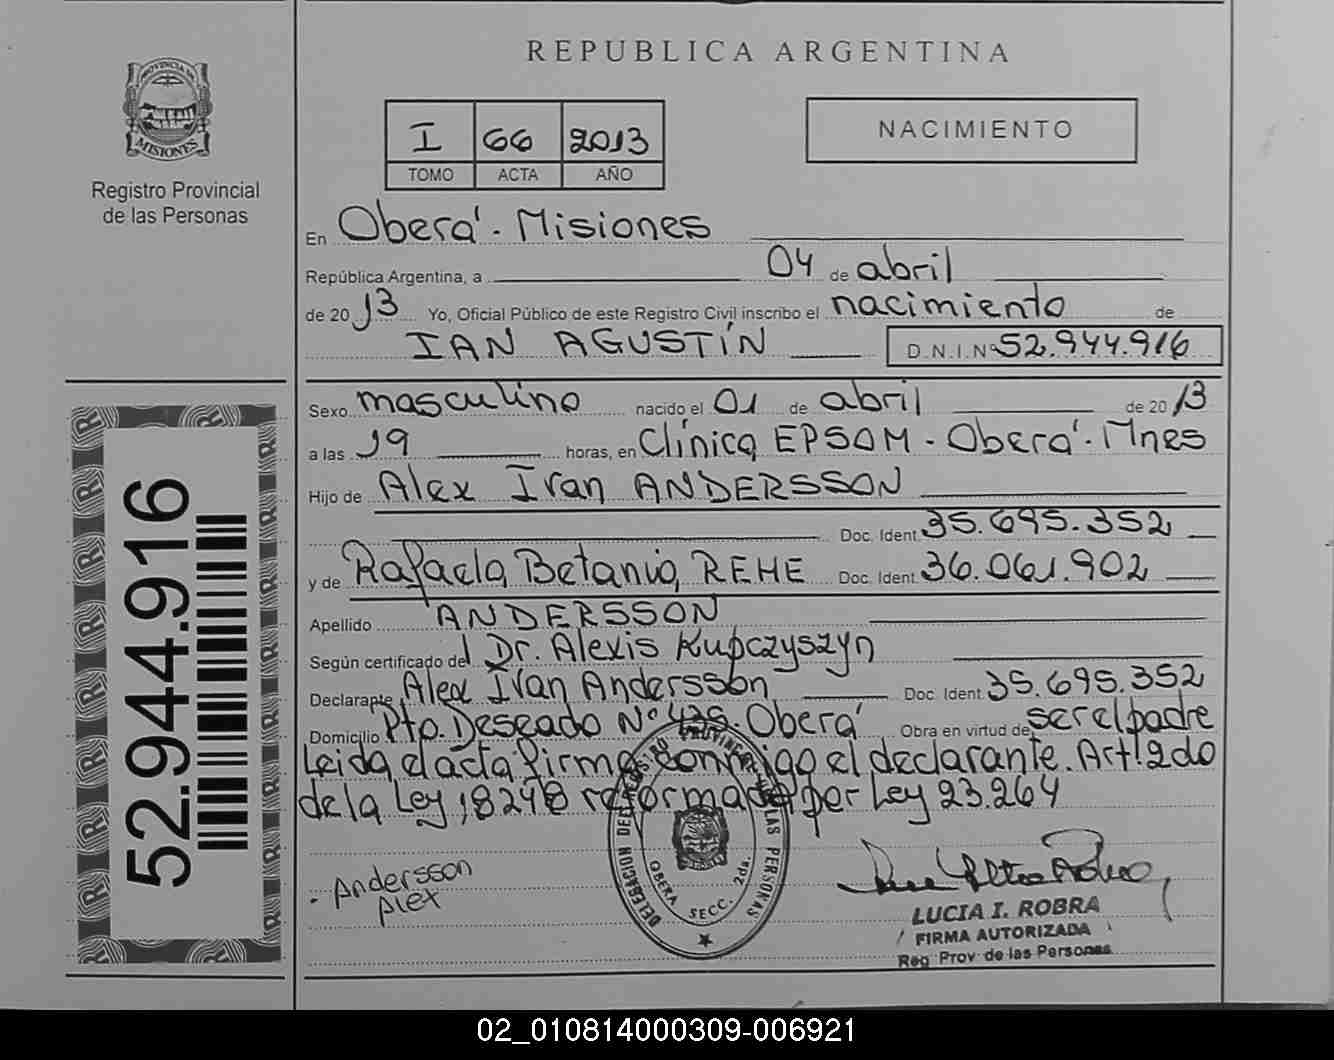 REPUBLICA ARGENTINA
PROVINCIA DE MISIONES
Registro Provincial
de las Personas
I 66 2013
TOMO ACTA AÑO
NACIMIENTO
En Oberá - Misiones
República Argentina, a 04 de abril
de 2013 Yo, Oficial Público de este Registro Civil inscribo el nacimiento de
IAN AGUSTÍN D.N.I.Nº 52.944.916
Sexo masculino nacido el 01 de abril de 2013
a las 19 horas, en Clínica EPSOM - Oberá - Mnes
Hijo de Alex Ivan ANDERSSON
Doc. Ident. 35.695.352
y de Rafaela Betania REHE Doc. Ident. 36.061.902
Apellido ANDERSSON
Según certificado del Dr. Alexis Kupczyszyn
Declarante Alex Ivan Andersson Doc. Ident. 35.695.352
Domicilio Pto. Deseado Nº 425 - Oberá Obra en virtud de ser el padre
Leida el acta firma conmigo el declarante. Art. 2do
de la Ley 18248 reformada por Ley 23.264
Andersson
Alex
DELEGACION DEL REGISTRO PROVINCIAL DE LAS PERSONAS
OBERA SECC. 2da.
LUCIA I. ROBRA
FIRMA AUTORIZADA
Reg Prov de las Personas
52.944.916
02_010814000309-006921